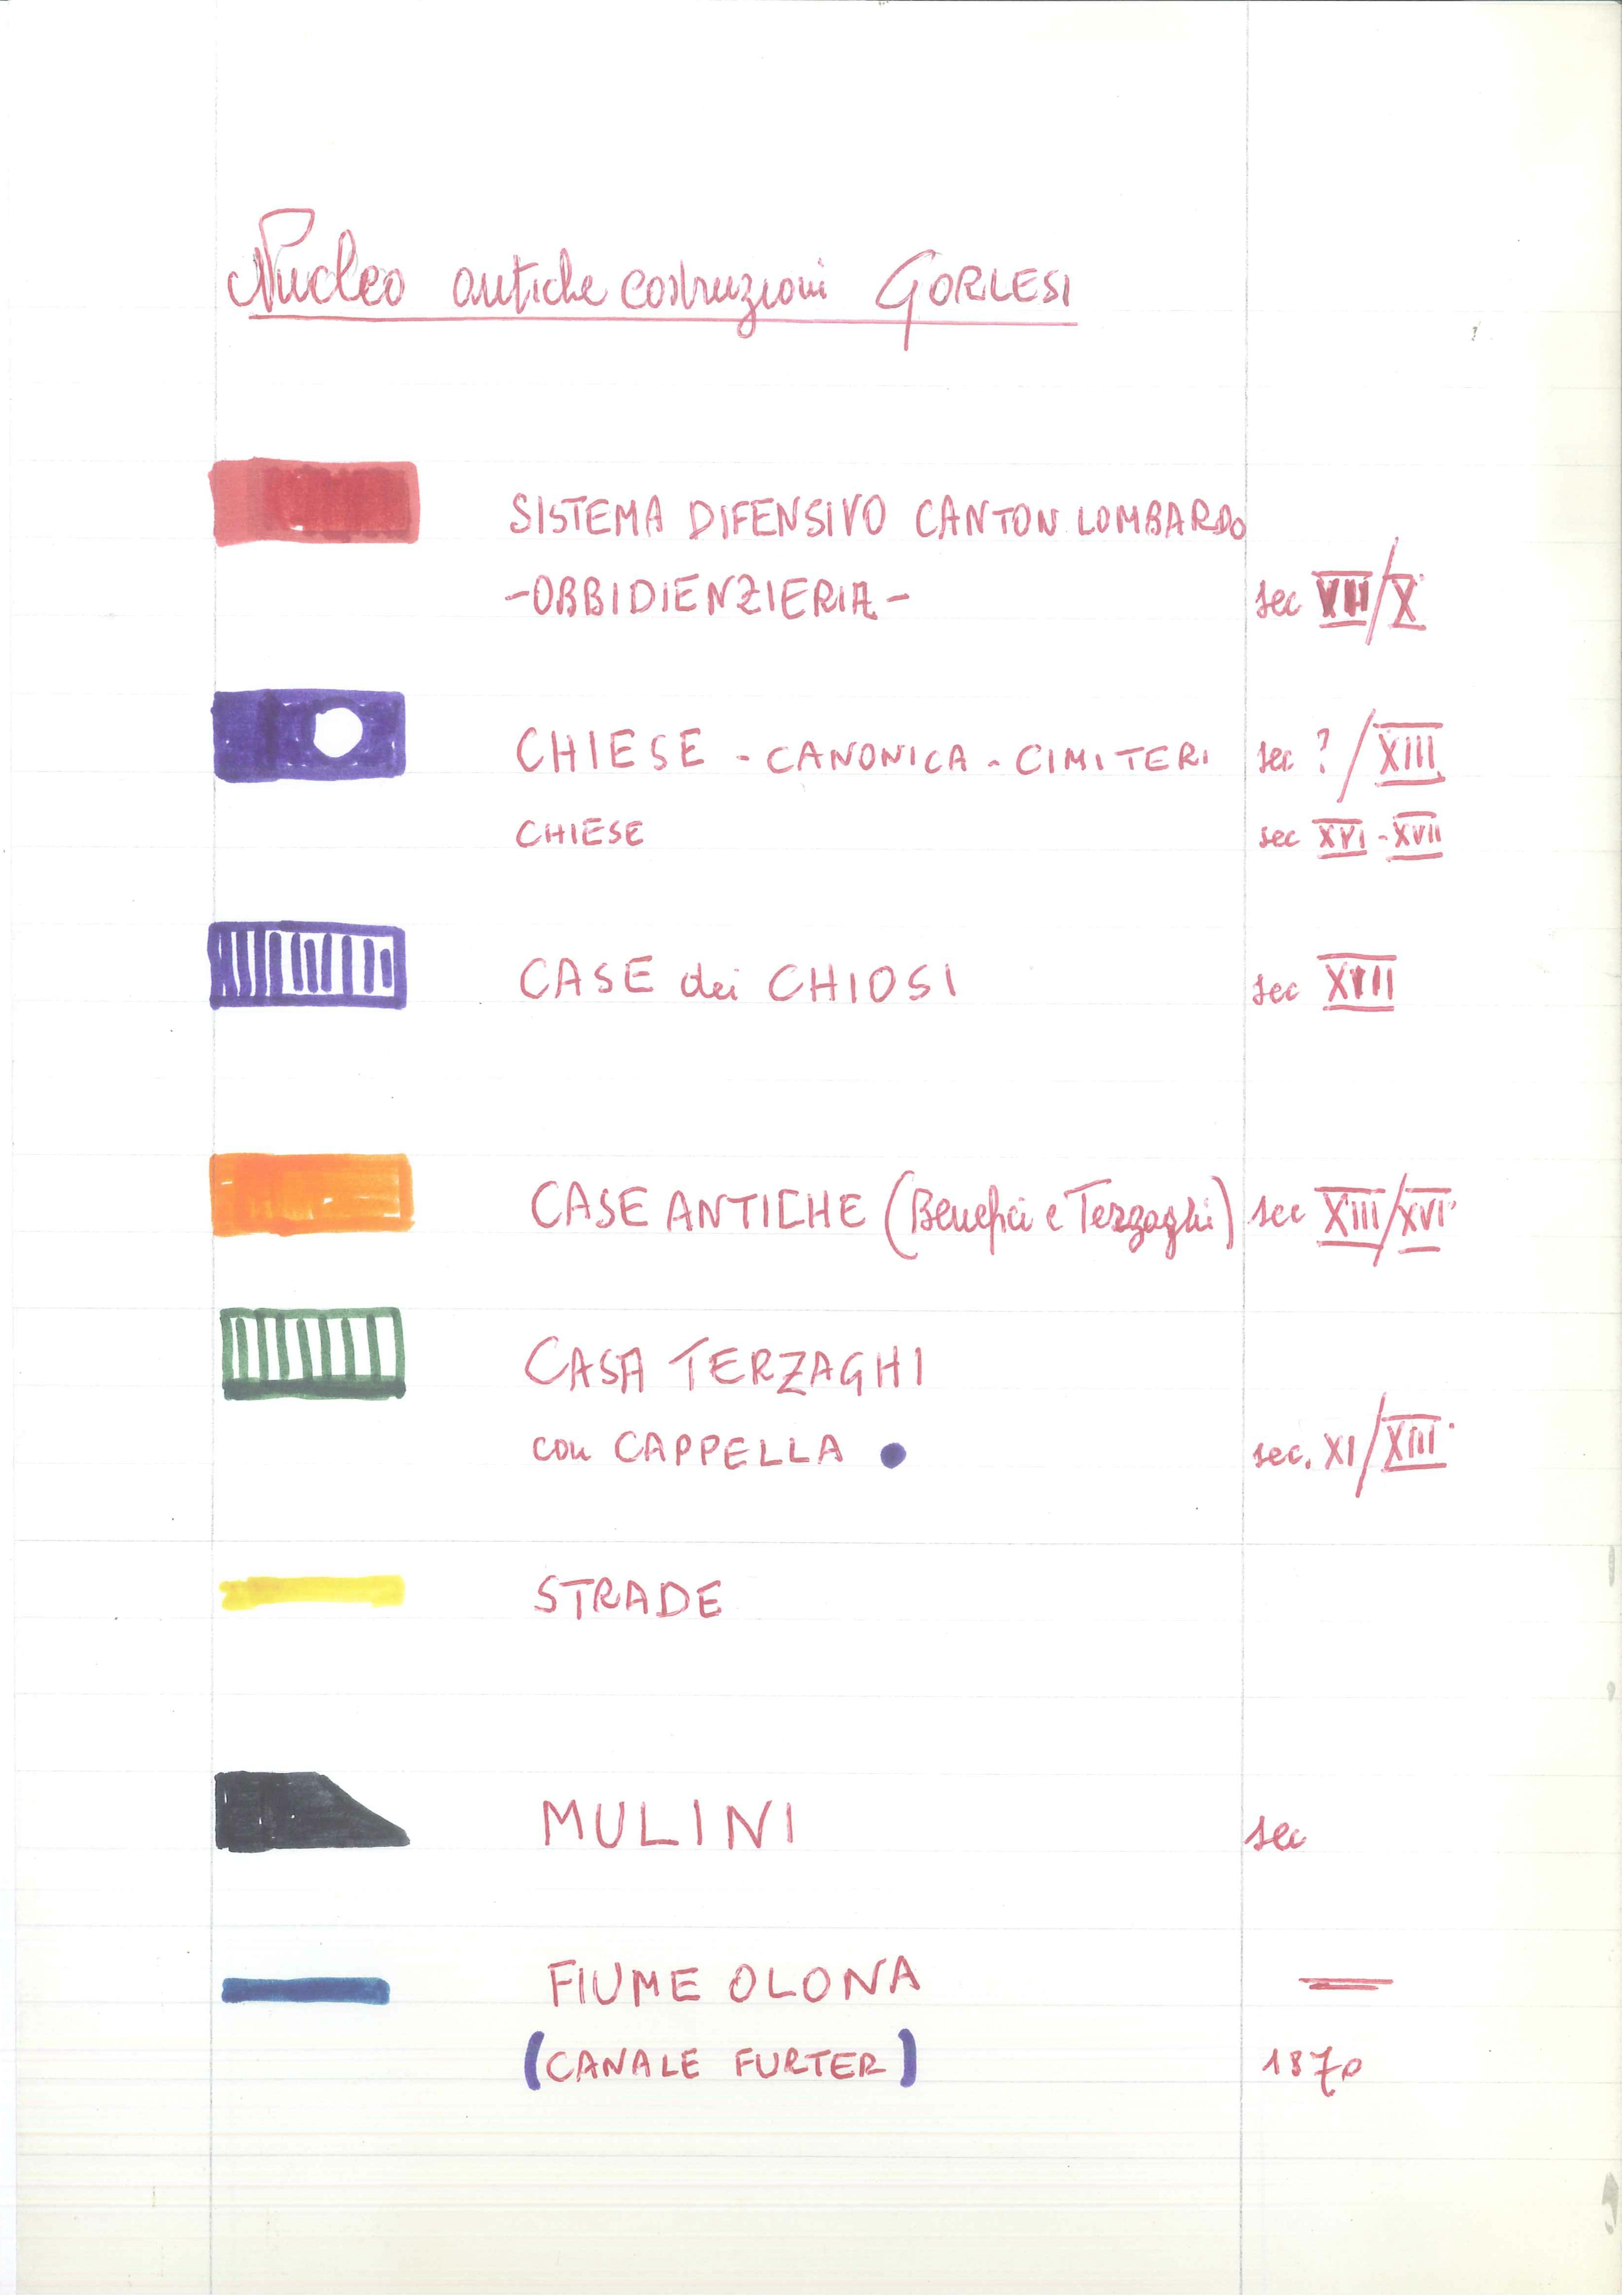 Nucleo antiche costruzioni GORLESI
SISTEMA DIFENSIVO CANTON LOMBARDO
-OBBIDIENZIERIA- sec VII/X
CHIESE - CANONICA - CIMITERI sec ? / XIII
CHIESE sec XVI - XVII
CASE dei CHIOSI sec XVII
CASE ANTICHE (Benefici e Terzaghi) sec XIII/XVI
CASA TERZAGHI
con CAPPELLA sec. XI/XIII
STRADE
MULINI sec
FIUME OLONA
(CANALE FURTER) 1870